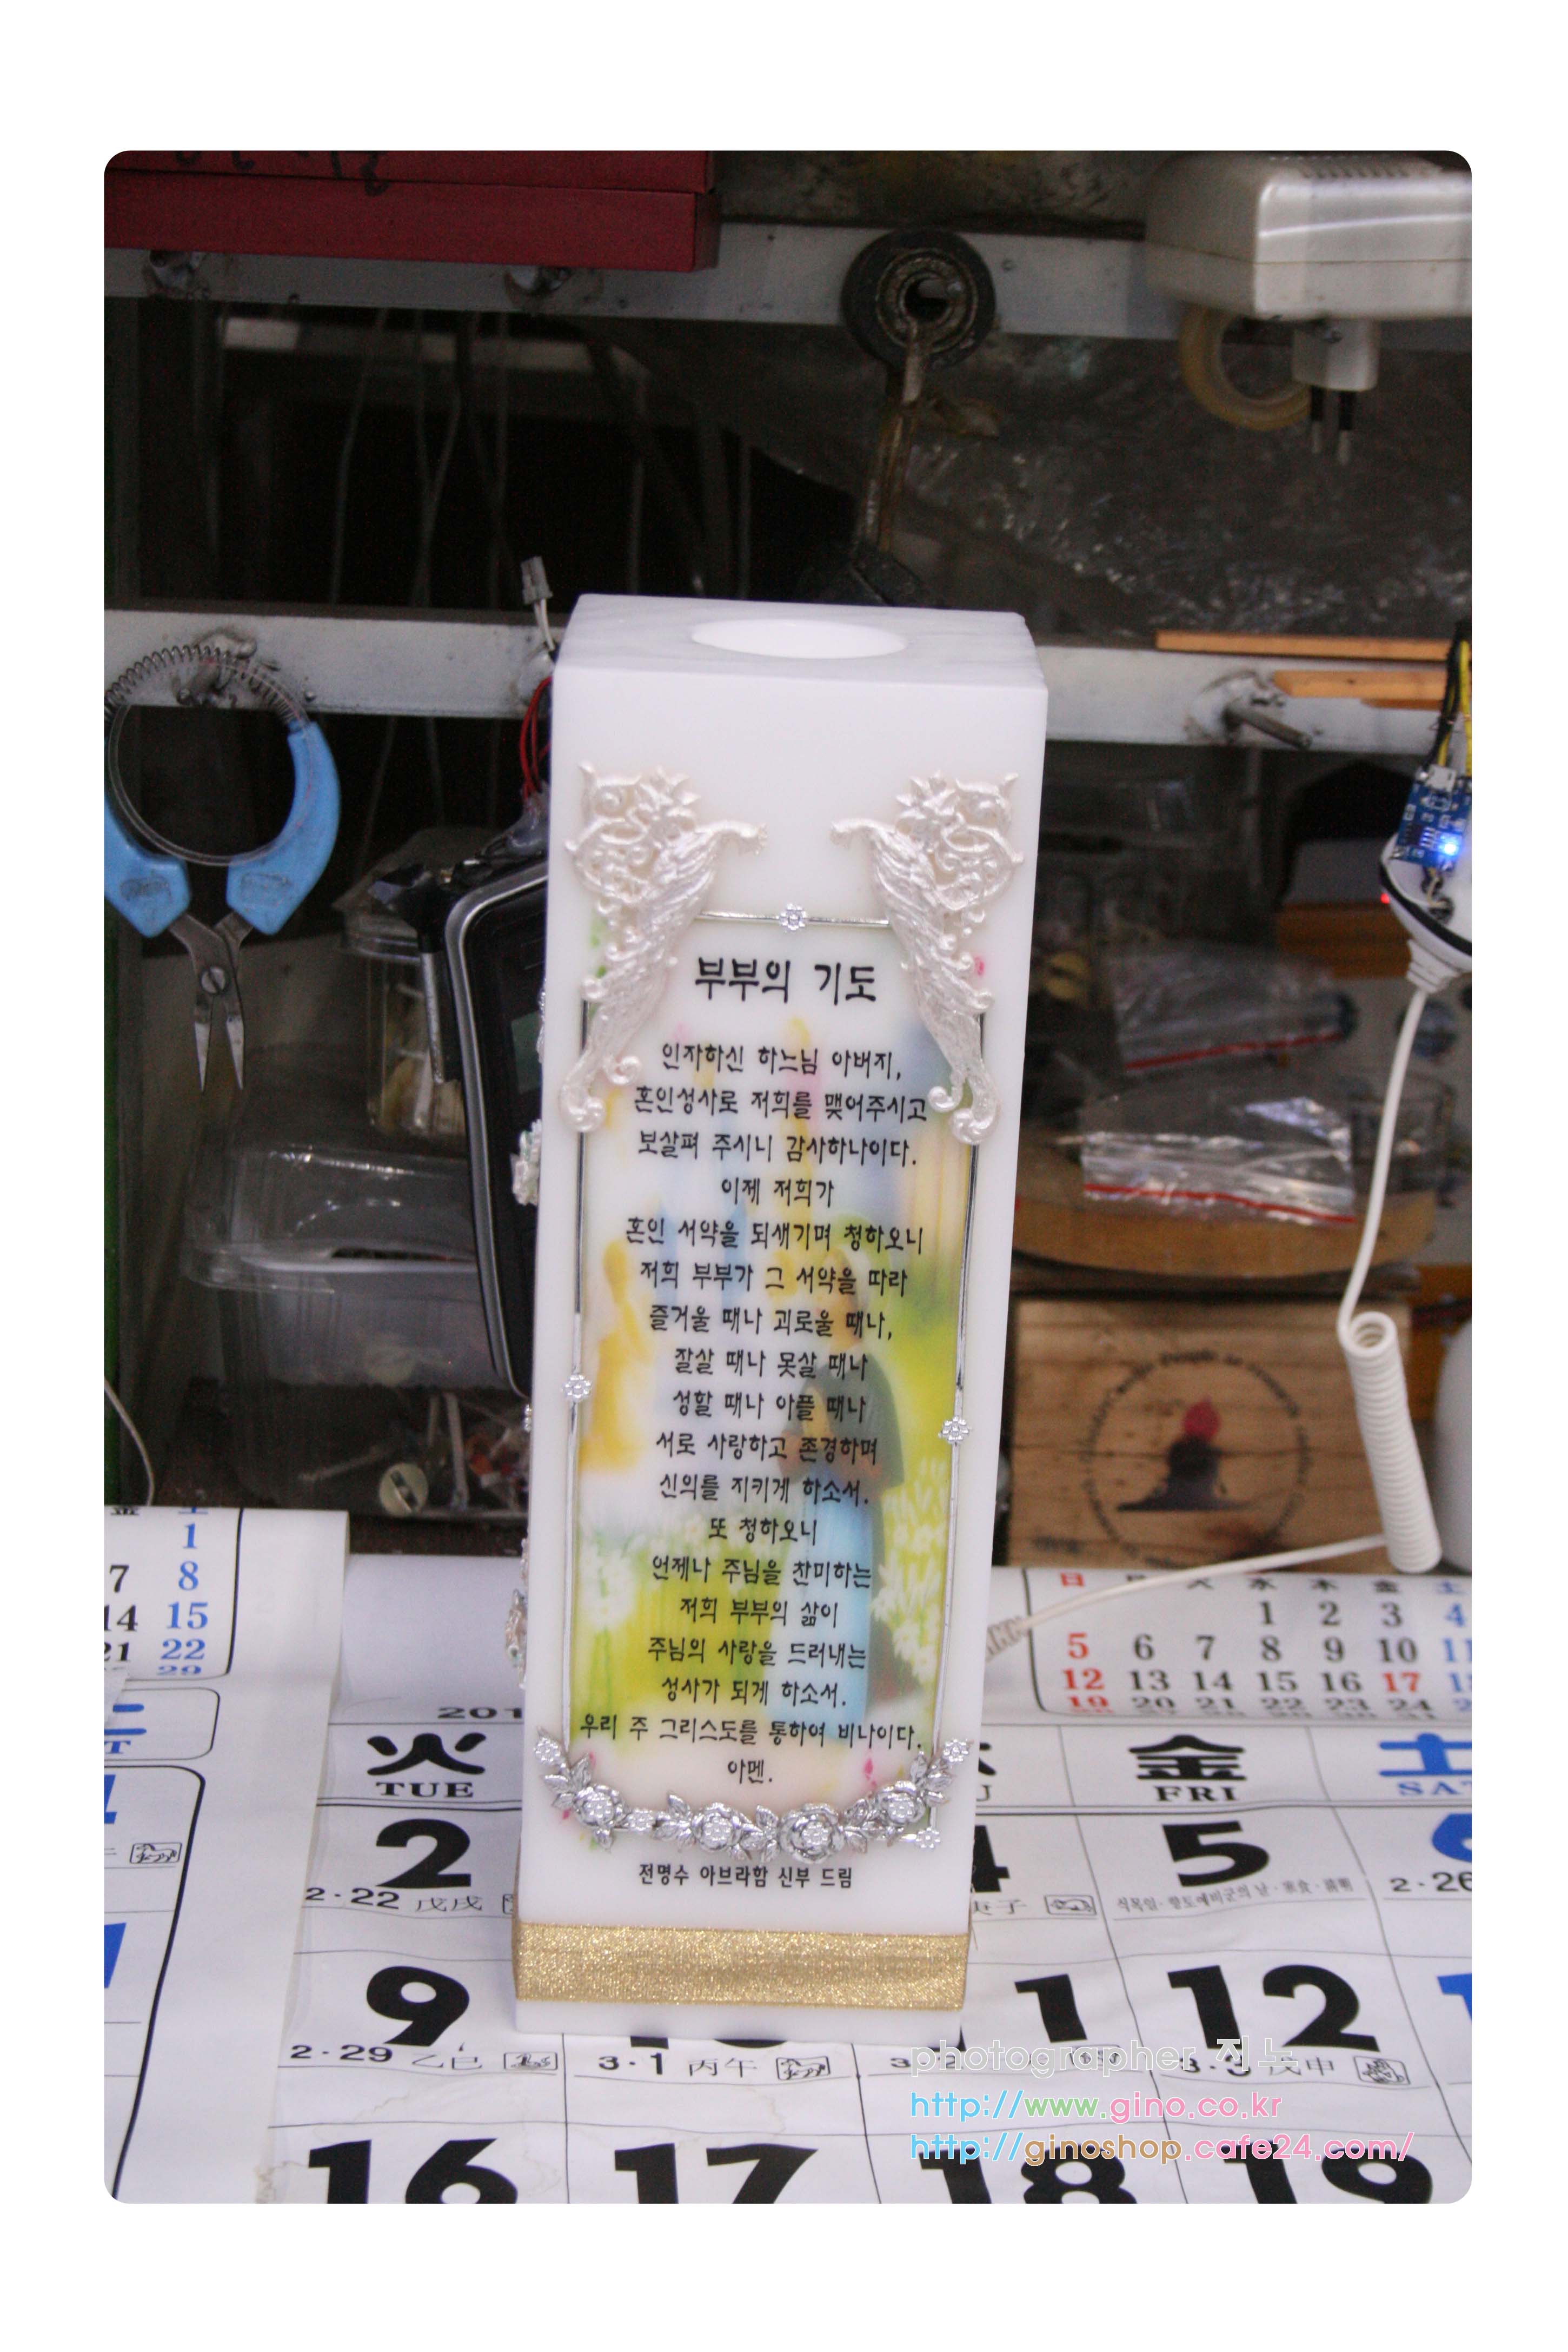 부부의 기도
인자하신 하느님 아버지,
혼인성사로 저희를 맺어주시고
보살펴 주시니 감사하나이다.
이제 저희가
혼인 서약을 되새기며 청하오니
저희 부부가 그 서약을 따라
즐거울 때나 괴로울 때나,
잘살 때나 못살 때나
성할 때나 아플 때나
서로 사랑하고 존경하며
신의를 지키게 하소서.
또 청하오니
언제나 주님을 찬미하는
저희 부부의 삶이
주님의 사랑을 드러내는
성사가 되게 하소서.
우리 주 그리스도를 통하여 비나이다.
아멘.
전명수 아브라함 신부 드림
金 土
1
7 8
14 15
21 22
29
日 水 木 金 土
1 2 3 4
5 6 7 8 9 10 11
12 13 14 15 16 17
19 20 21 22 23 24
201
火 金 土
TUE FRI SAT
2 4 5 6
2·22 戊戌 庚子 식목일·향토예비군의 날·寒食·淸明 2·26
9 10 11 12
2·29 乙巳 3·1 丙午 3·3 戊申
16 17 18 19
photographer 지노
http://www.gino.co.kr
http://ginoshop.cafe24.com/